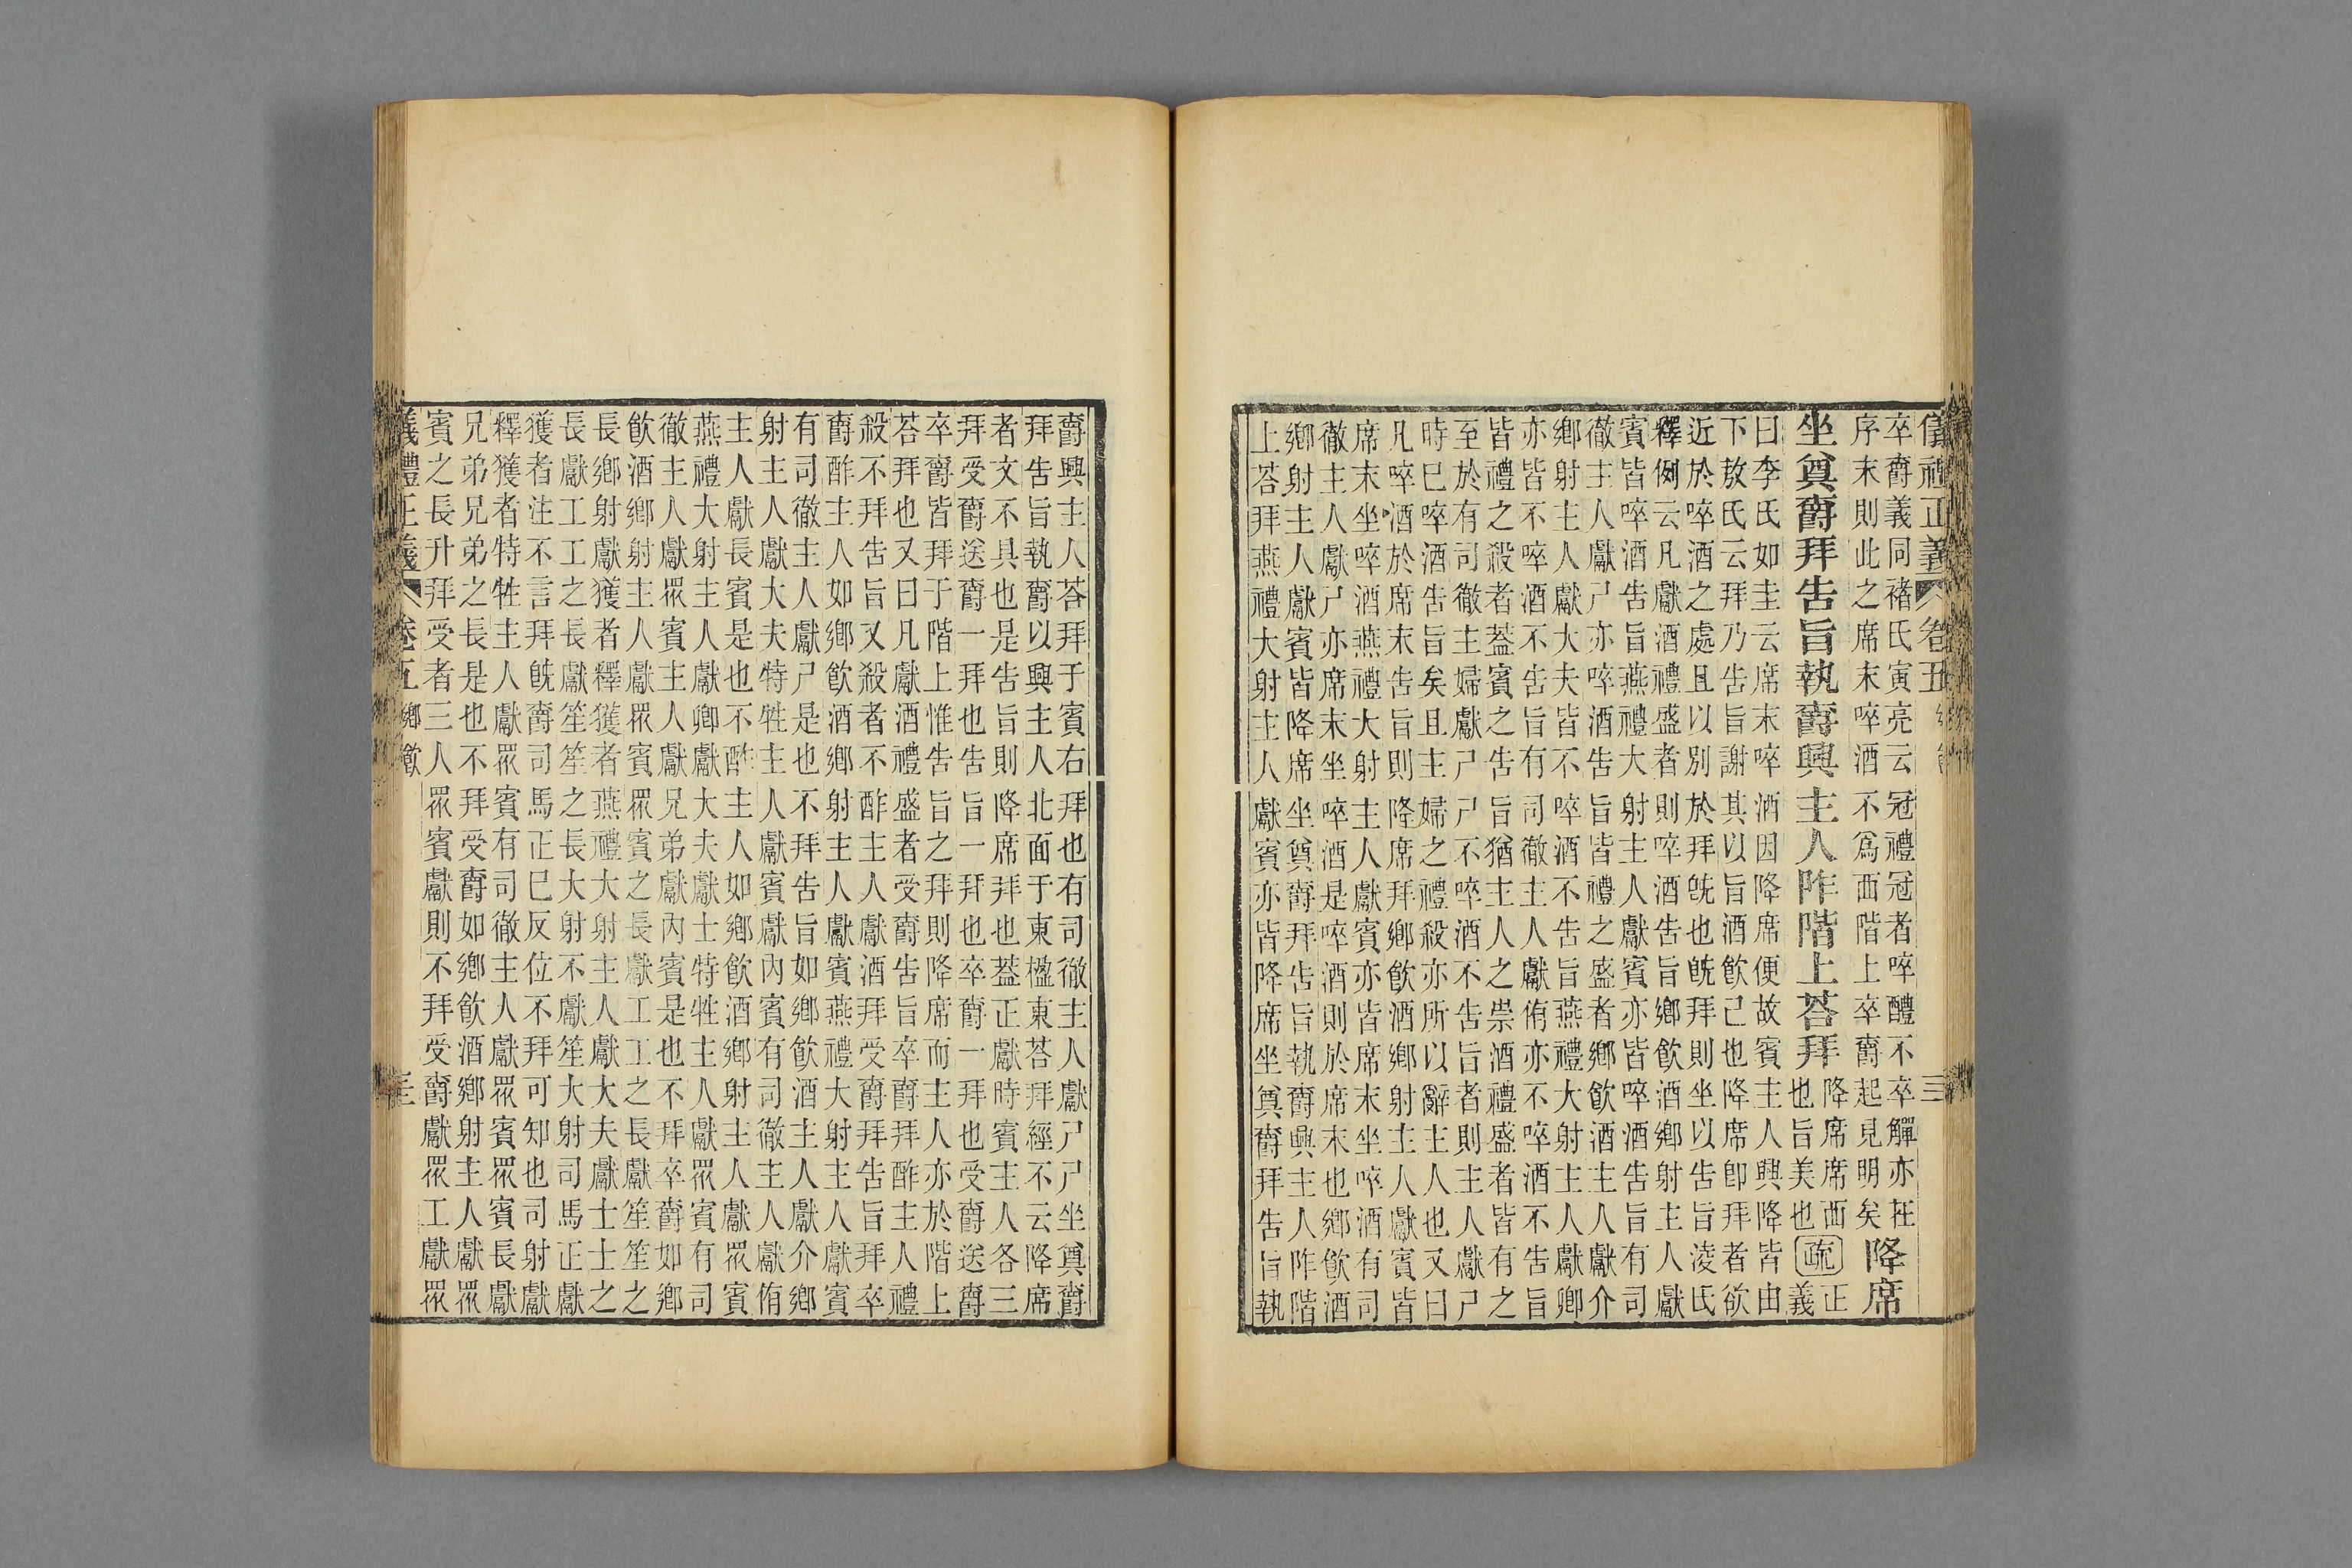 儀禮正義 卷五 三
卒爵義同褚氏寅亮云冠禮冠者啐醴不卒觶亦在
序末則此之席末啐酒不爲西階上卒爵起見明矣
降席
坐奠爵拜告旨執爵興主人阼階上荅拜
降席席西
也旨美也
疏
正義
曰李氏如圭云席末啐酒因降席便故賓主人興降皆由
下敖氏云拜乃告旨謝其以旨酒飲己也降席卽拜者欲
近於啐酒之處且以別於拜旣也旣拜則坐以告旨淩氏
釋例云凡獻酒禮盛者則啐酒告旨鄉飲酒鄉射主人獻
賓皆啐酒告旨燕禮大射主人獻賓亦皆啐酒告旨有司
徹主人獻尸亦啐酒告旨皆禮之盛者鄉飲酒主人獻介
鄉射主人獻大夫皆不啐酒不告旨燕禮大射主人獻卿
亦皆不啐酒不告旨有司徹主人獻侑亦不啐酒不告旨
皆禮之殺者葢賓之告旨猶主人之崇酒禮盛者皆有之
至於有司徹主婦獻尸尸不啐酒不告旨者則主人獻尸
時已啐酒告旨矣且主婦之禮殺亦所以辭主人也又曰
凡啐酒於席末告旨則降席拜鄉飲酒鄉射主人獻賓皆
席末坐啐酒燕禮大射主人獻賓亦皆席末坐啐酒有司
徹主人獻尸亦席末坐啐酒是啐酒則於席末也鄉飲酒
鄉射主人獻賓皆降席坐奠爵拜告旨執爵興主人阼階
上荅拜燕禮大射主人獻賓亦皆降席坐奠爵拜告旨執
爵興主人荅拜于賓右拜也有司徹主人獻尸尸坐奠爵
拜告旨執爵以興主人北面于東楹東荅拜經不云降席
者文不具也是告旨則降席拜也葢正獻時賓主人各三
拜受爵送爵一拜也告旨一拜也卒爵一拜也受爵送爵
卒爵皆拜于階上惟告旨之拜則降席而主人亦於階上
荅拜也又曰凡獻酒禮盛者受爵告旨卒爵拜酢主人禮
殺不拜告旨又殺者不酢主人獻酒拜受爵拜告旨拜卒
爵酢主人如鄉飲酒鄉射主人獻賓燕禮大射主人獻賓
有司徹主人獻尸是也不拜告旨如鄉飲酒主人獻介鄉
射主人獻大夫特牲主人獻賓獻內賓有司徹主人獻侑
主人獻長賓是也不酢主人如鄉飲酒鄉射主人獻眾賓
燕禮大射主人獻卿獻大夫獻士特牲主人獻眾賓有司
徹主人獻眾賓主人獻兄弟獻內賓是也不拜卒爵如鄉
飮酒鄉射主人獻眾賓眾賓之長獻工工之長獻笙笙之
長鄉射獻獲者釋獲者燕禮大射主人獻大夫獻士士之
長獻工工之長獻笙笙之長大射不獻笙大射司馬正獻
獲者注不言拜旣爵司馬正已反位不拜可知也司射獻
釋獲者特牲主人獻眾賓有司徹主人獻眾賓眾賓長獻
兄弟兄弟之長是也不拜受爵如鄉飲酒鄉射主人獻眾
賓之長升拜受者三人眾賓獻則不拜受爵獻眾工獻眾
儀禮正義 卷五 鄉飲